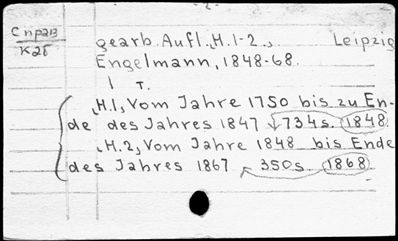 -2-
Справ
К28
gearb. Aufl. H.1-2., Leipzig
Engelmann, 1848-68.
1 т.
H.1, Vom Jahre 1750 bis zu En-
de des Jahres 1847 734 s. 1848
H.2, Vom Jahre 1848 bis Ende
des Jahres 1867 350 s. 1868